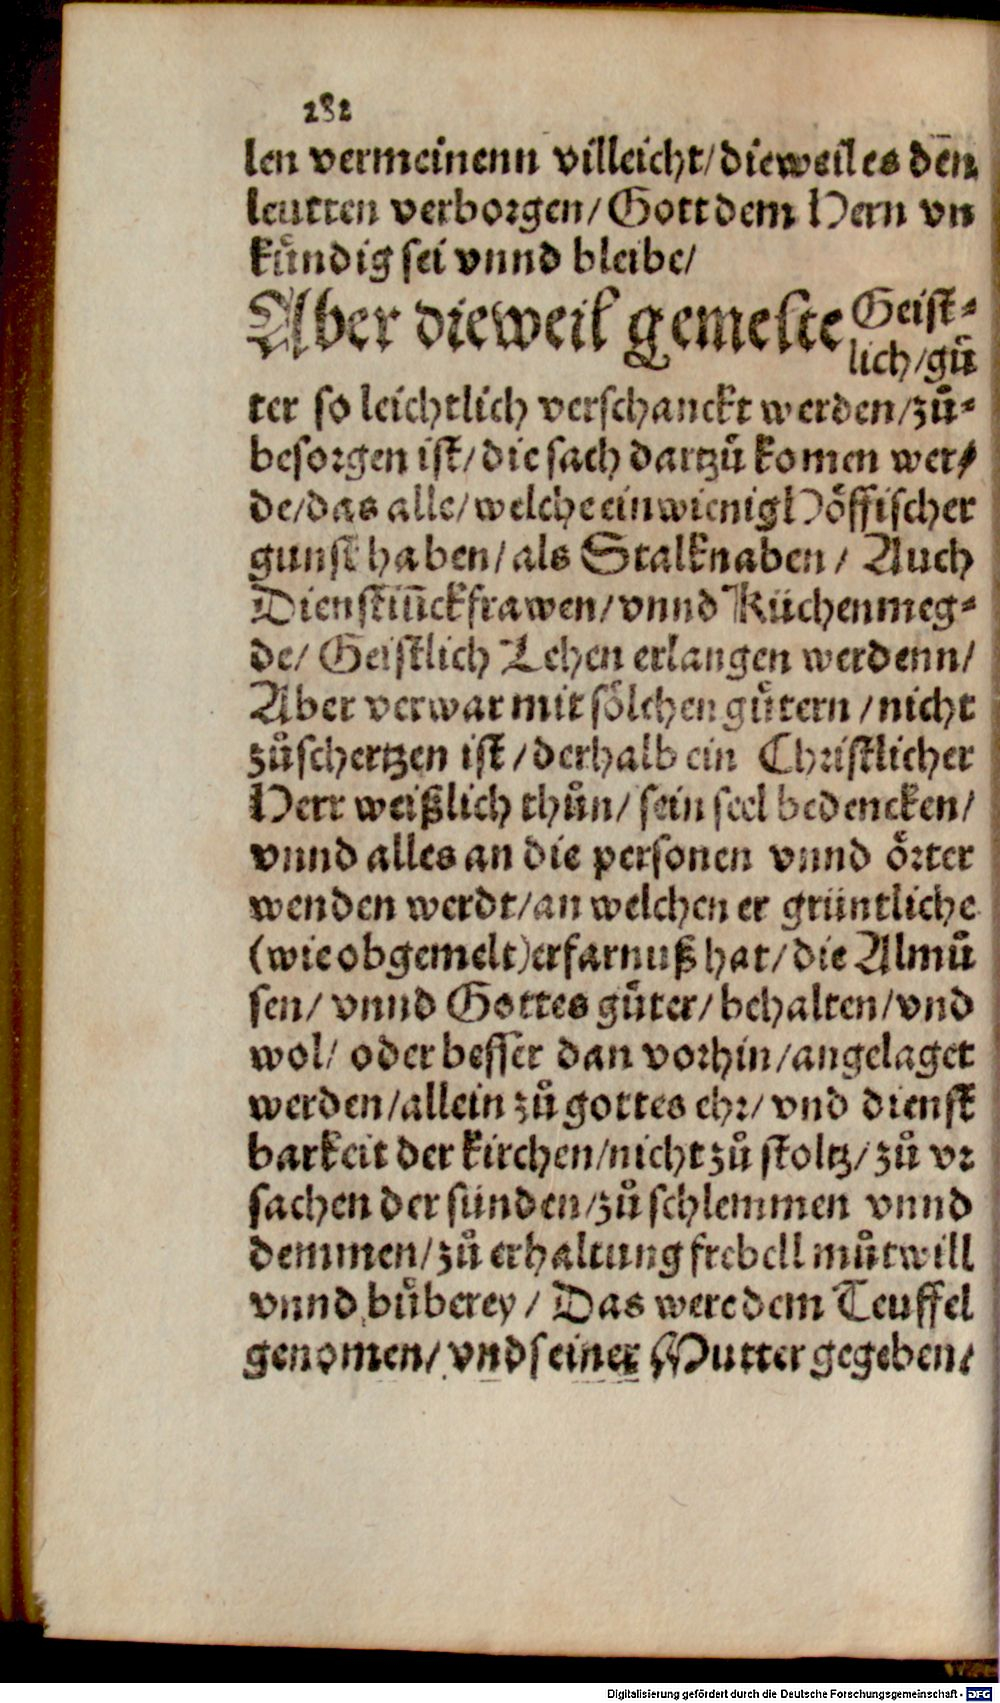 282
len vermeinenn villeicht/dieweil es den̄
leutten verborgen/Gott dem Hern vn
kündig sei vnnd bleibe/
Aber dieweil gemelte Geist-
lich/gů
ter so leichtlich verschanckt werden/zů-
besorgen ist/die sach dartzů komen wer-
de/das alle/welche ein wienig Höffischer
gunst haben/als Stalknaben/ Auch
Dienstiūckfrawen/vnnd Küchenmeg-
de/ Geistlich Lehen erlangen werdenn/
Aber verwar mit sölchen gůtern/nicht
zůschertzen ist/derhalb ein Christlicher
Herr weißlich thůn/ sein seel bedencken/
vnnd alles an die personen vnnd örter
wenden werdt/an welchen er grüntliche
(wie obgemelt)erfarnuß hat/die Almů
sen/ vnnd Gottes gůter/behalten/vnd
wol/ oder besser dan vorhin/angelaget
werden/allein zů gottes ehr/ vnd dienst
barkeit der kirchen/nicht zů stoltz/zů vr
sachen der sünden/zů schlemmen vnnd
demmen/zů erhaltung frebell můtwill
vnnd bůberey/ Das were dem Teuffel
genomen/vnd seiner Mutter gegeben/
Digitalisierung gefördert durch die Deutsche Forschungsgemeinschaft - DFG